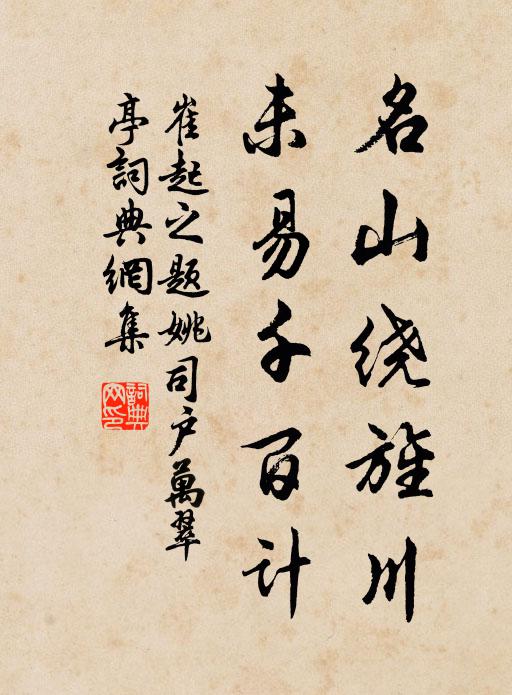 名山绕旌川
未易千百计
崔起之题姚司户萬翠
亭詞典網集
詞典網印